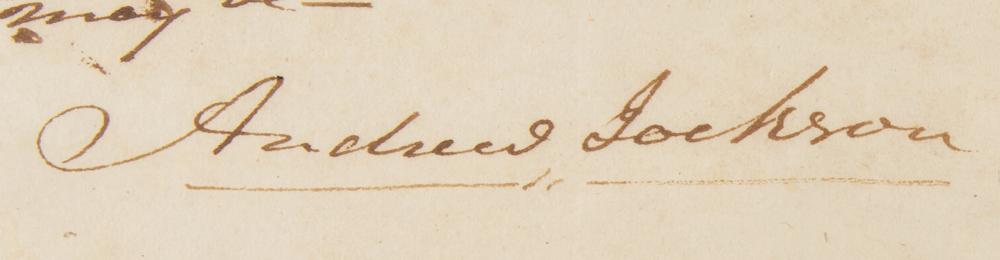 may be —
Andrew Jackson